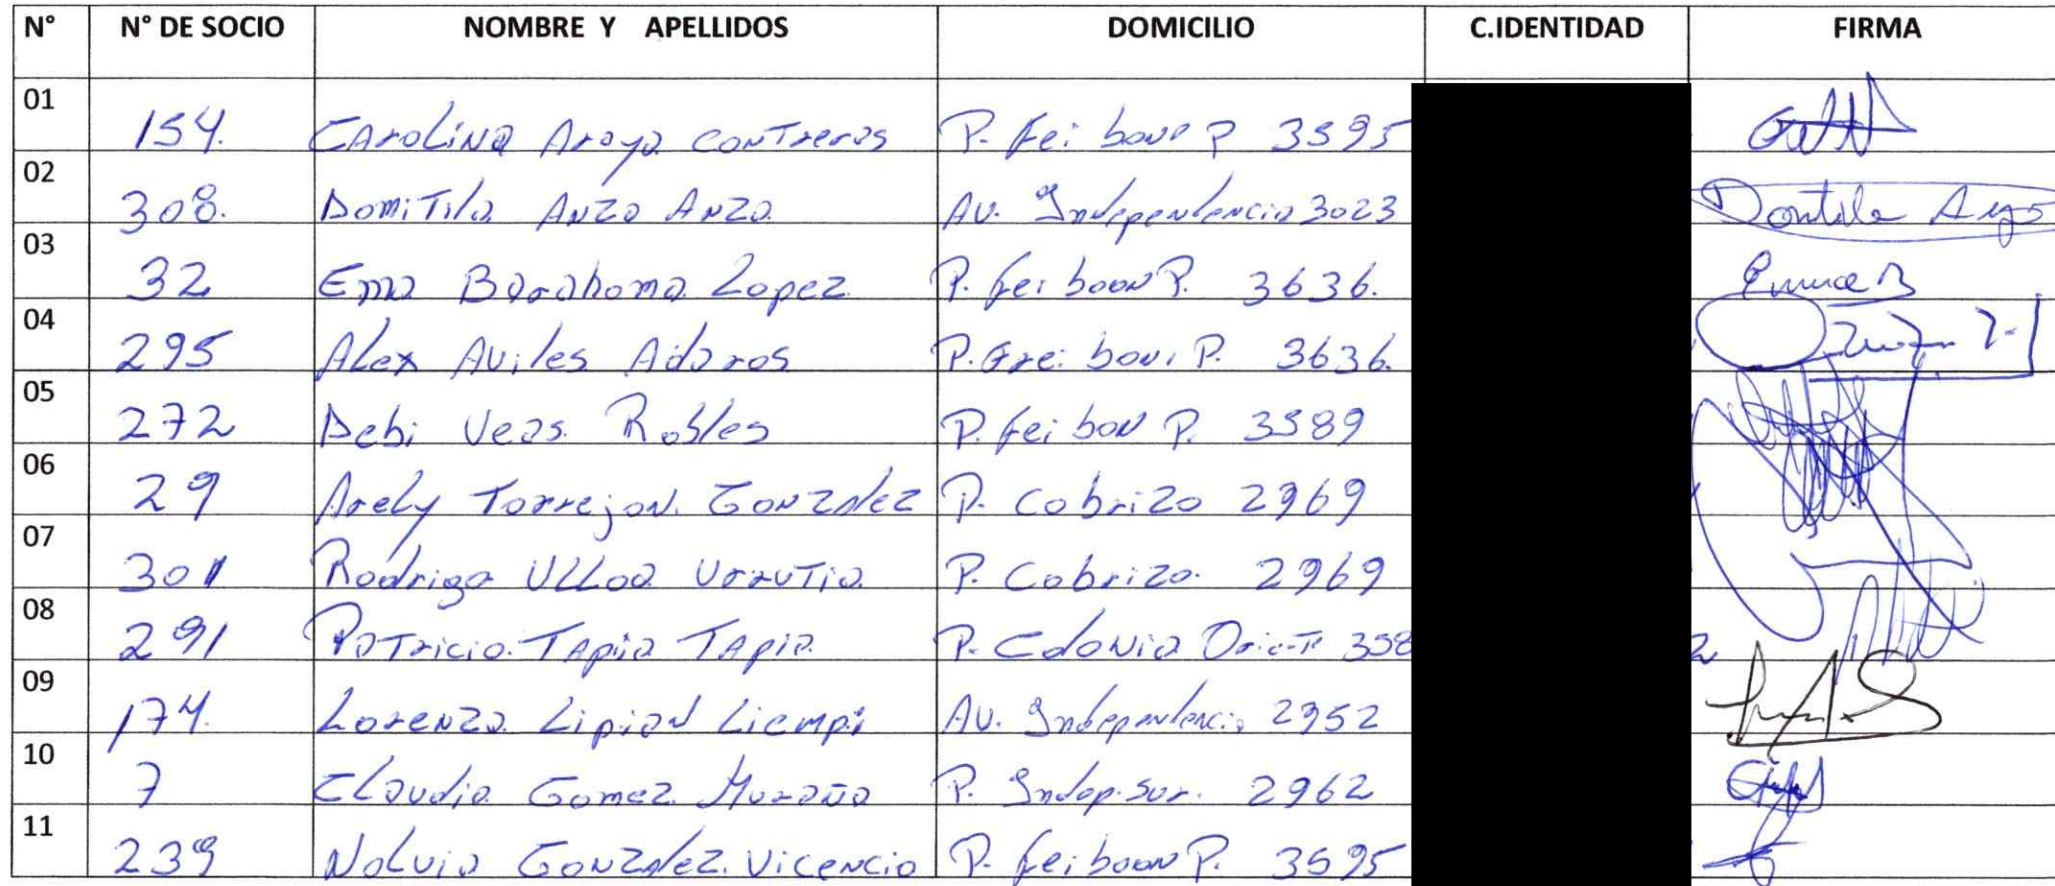 N° N° DE SOCIO NOMBRE Y APELLIDOS DOMICILIO C.IDENTIDAD FIRMA
01 154. Carolina Araya Contreras P. Fei bon P 3595
02 308. Domitila Anza Anza AV. Independencia 3023
03 32 Ema Barahoma Lopez P. Fei boon P. 3636.
04 295 Alex Aviles Adaros P. P. 3636.
05 272 Debi Veas Robles P. Fei bon P. 3589
06 29 Arely Torrejon Gonzalez P. Cobrizo 2969
07 301 Rodrigo Ulloa Urrutia P. Cobrizo. 2969
08 291 Patricio Tapia Tapia P. Colonia 358 2
09 174. Lorenza Lipian Liempi AV. Independencia 2952
10 7 Claudia Gomez P. Indep. Sur. 2962
11 239 Nolvia Gonzalez Vicencio P. Fei boon P. 3595